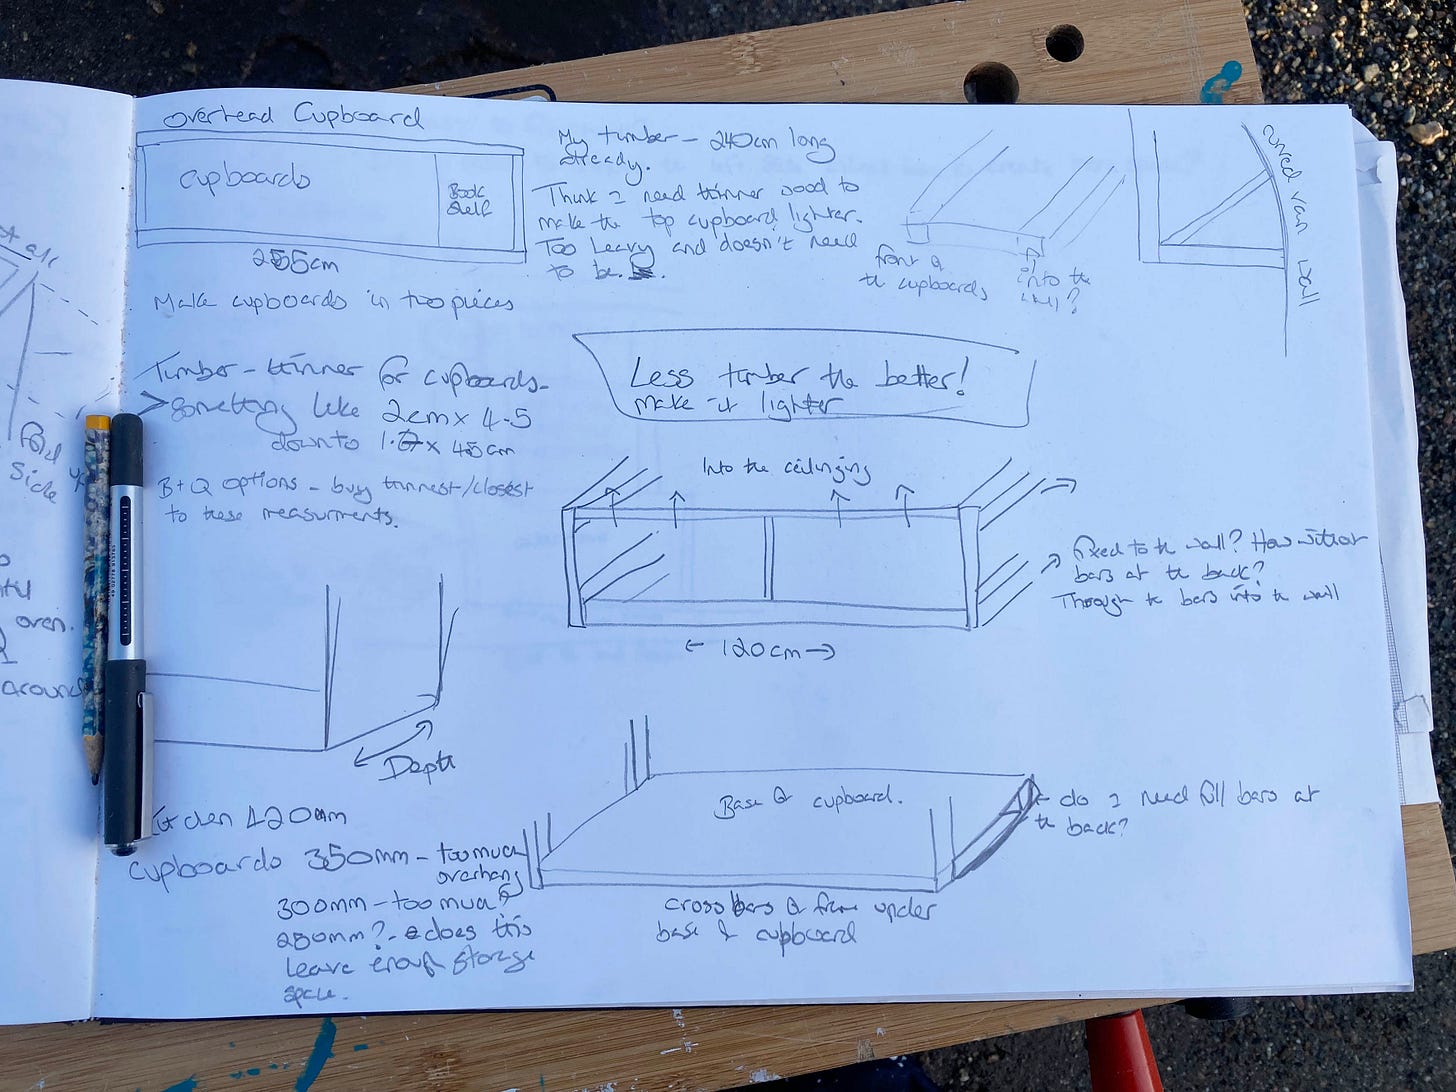 overhead Cupboard
cupboards
Book
Shelf
255cm
Make cupboards in two pieces
My timber - 240cm long
already.
Think I need thinner wood to
make the top cupboard lighter.
Too heavy and doesn't need
to be.
front of
the cupboards
into the
wall?
curved van wall
Timber - thinner for cupboards-
> something like 2cm x 4.5
down to 1. x 45cm
B+Q options - buy thinnest/closest
to these measurments.
Less timber the better!
make it lighter
Into the ceilinging
fixed to the wall? How without
bars at the back?
Through the bars into the wall
← 120cm →
Depth
Base of cupboard.
do I need full bars at
the back?
cross bars of frame under
base of cupboard
420mm
cupboards 350mm - too much
overhang
300mm - too much?
280mm? - does this
leave enough storage
space.
fold up
Side
oven.
around